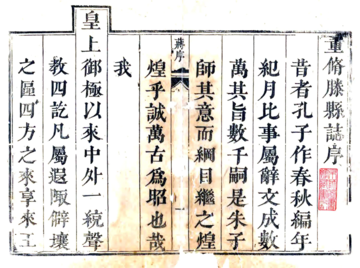 重脩滕縣誌序
昔者孔子作春秋編年
紀月比事屬辭文成數
萬其旨數千嗣是朱子
師其意而綱目繼之煌
煌乎誠萬古爲昭也哉
蔣序
我
皇上御極以來中外一統聲
教四訖凡屬遐陬僻壤
之區四方之來享來王